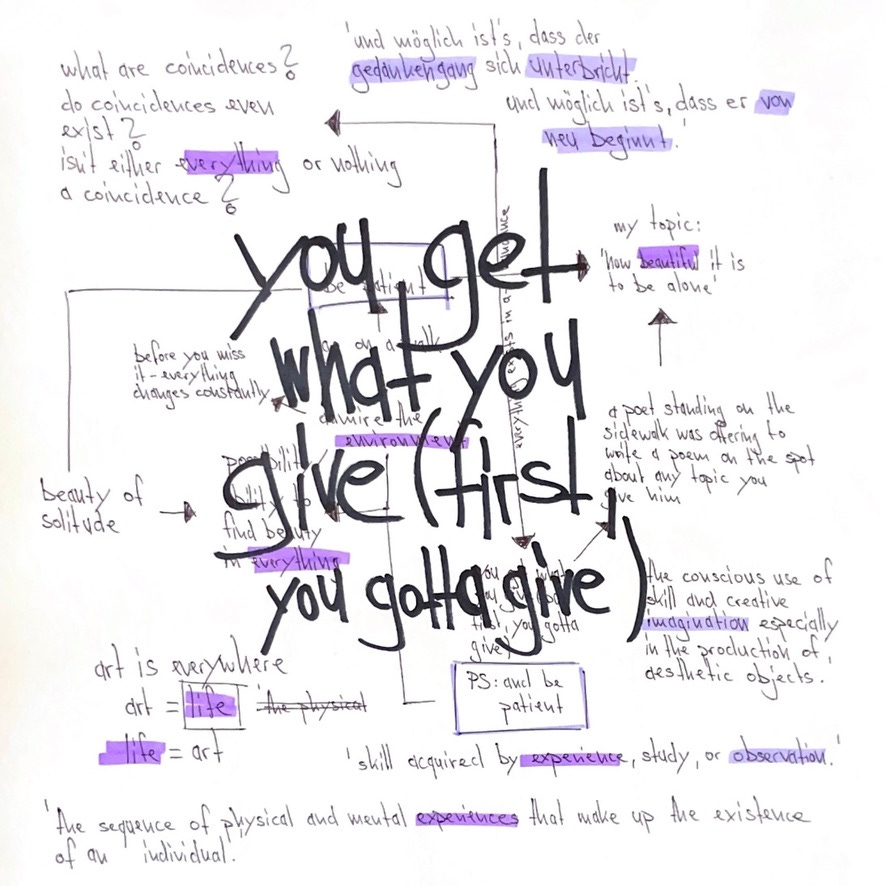 what are coincidences?
do coincidences even
exist?
isn't either everything or nothing
a coincidence?
'und möglich ist's, dass der
gedankengang sich unterbricht.
und möglich ist's, dass er von
neu beginnt.'
my topic:
'how beautiful it is
to be alone'
you get
what you
give (first,
you gotta give)
be patient
before you miss
it - everything
changes constantly
admire the
environment
everything
a poet standing on the
sidewalk was offering to
write a poem on the spot
about any topic you
give him
beauty of
solitude
possibility/
ability to
find beauty
in everything
you get what
you give
first, you gotta
give)
the conscious use of
skill and creative
imagination especially
in the production of
aesthetic objects.'
art is everywhere
art = life 'the physical
life = art
PS: and be
patient
'skill acquired by experience, study, or observation.'
'the sequence of physical and mental experiences that make up the existence
of an individual.